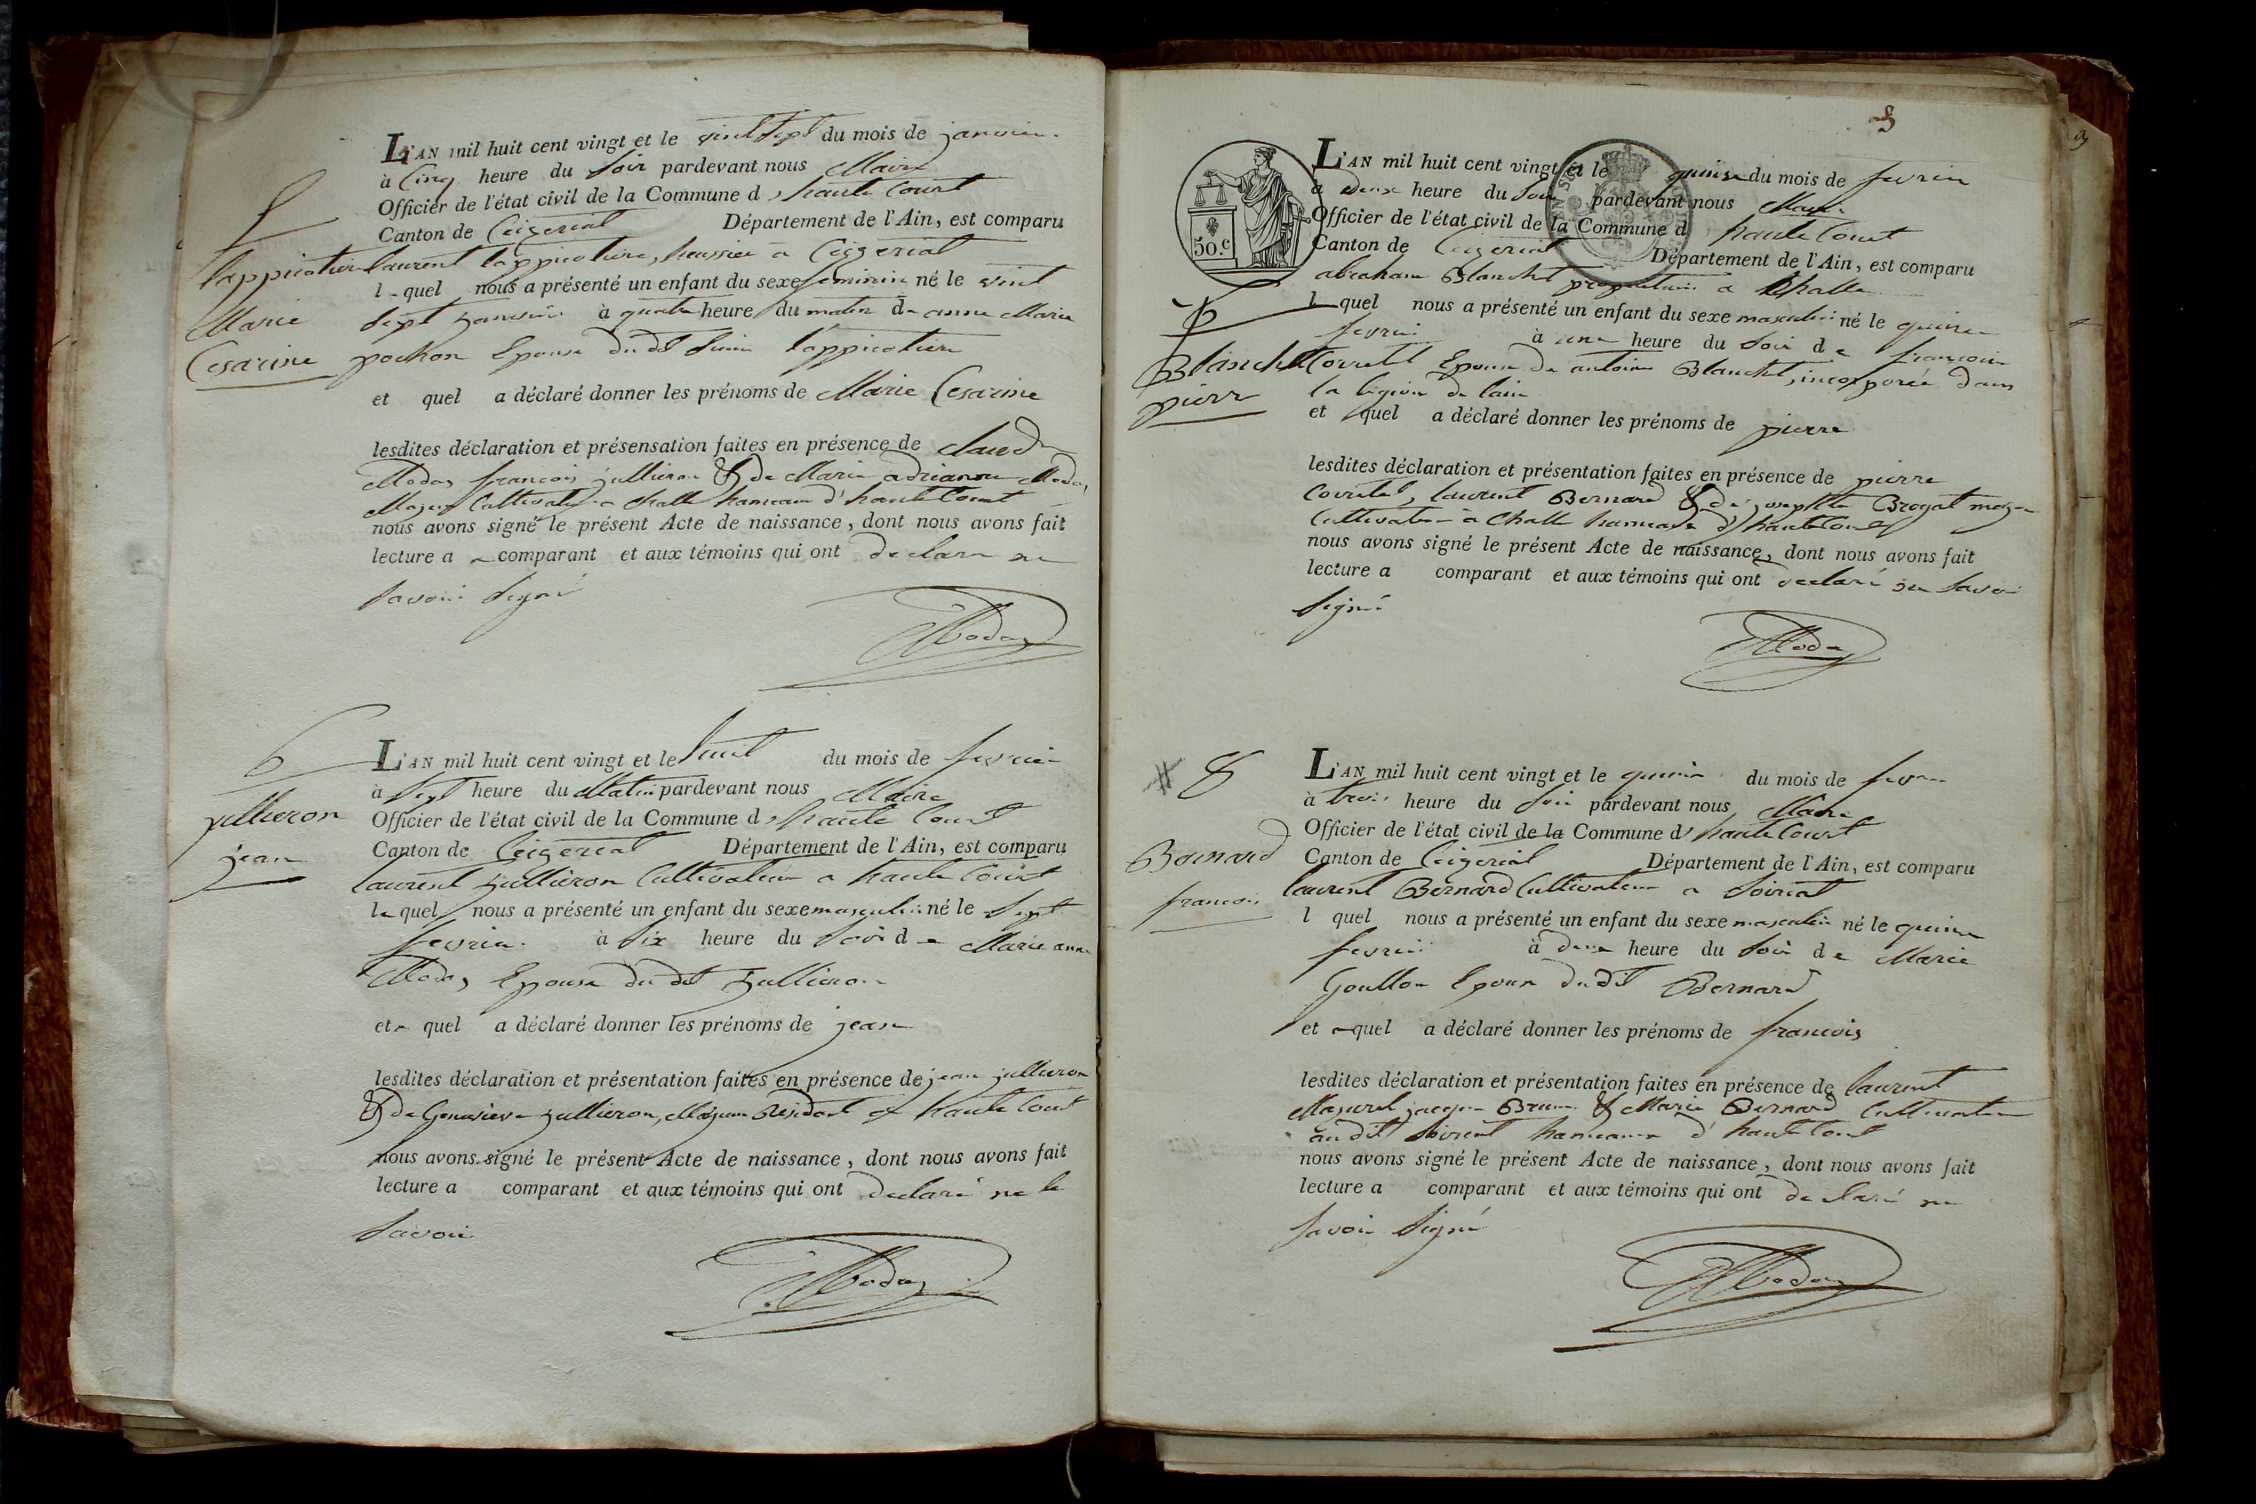 5
L'AN mil huit cent vingt et le vint sept du mois de janvier
à Cinq heure du Soir pardevant nous Maire
Officier de l'état civil de la Commune d'haute Court
Canton de Ceizeriat Département de l'Ain, est comparu
Lappicotiere laurent Lappicotiere, huissier a Ceizeriat
l quel nous a présenté un enfant du sexe feminin né le vint
Marie
Sept janvier à quatre heure du matin de anne Marie
Cesarine
pochon Epouse du dt Lappicotiere
et quel a déclaré donner les prénoms de Marie Cesarine
lesdites déclaration et présensation faites en présence de Claude
Moday francois jullieron & de Marie adrianne Moday
Majeur Cultivateur a Challe hameau d'haute Court
nous avons signé le présent Acte de naissance, dont nous avons fait
lecture a comparant et aux témoins qui ont declaré ne
savoir Signé
Moday
6
L'AN mil huit cent vingt et le huit du mois de fevrier
à Sept heure du Matin pardevant nous Maire
jullieron
Officier de l'état civil de la Commune d'haute Court
jean
Canton de Ceizeriat Département de l'Ain, est comparu
laurent jullieron Cultivateur a haute Court
le quel nous a présenté un enfant du sexe masculin né le Sept
fevrier à Six heure du Soir de Marie anne
Moday Epouse du dt jullieron
et quel a déclaré donner les prénoms de jean
lesdites déclaration et présentation faites en présence de jean jullieron
& de Genevieve jullieron, Majeur Residant a haute Court
nous avons signé le présent Acte de naissance, dont nous avons fait
lecture a comparant et aux témoins qui ont declaré ne le
Savoir
Moday
3
50.c
L'AN mil huit cent vingt et le quinze du mois de fevrier
a deux heure du Soir pardevant nous Maire
Officier de l'état civil de la Commune d haute Court
Canton de Ceizeriat Département de l'Ain, est comparu
abraham Blanchet proprietaire a Challe
7
l quel nous a présenté un enfant du sexe masculin né le quinze
fevrier à une heure du Soir de francoise
Blanchet
Covretel Epouse de antoine Blanchet, incorporée dans
pierre
la legion de lain
et quel a déclaré donner les prénoms de pierre
lesdites déclaration et présentation faites en présence de pierre
Covretel, laurent Bernard & de josephte Brogat
Cultivateur à Challe hameau d'haute Court
nous avons signé le présent Acte de naissance, dont nous avons fait
lecture a comparant et aux témoins qui ont declaré ne Savoir
Signé
Moday
8
L'AN mil huit cent vingt et le quinze du mois de fevrier
à trois heure du Soir pardevant nous Maire
Officier de l'état civil de la Commune d'haute Court
Bernard
Canton de Ceizeriat Département de l'Ain, est comparu
laurent Bernard Cultivateur a Soiriat
francois
l quel nous a présenté un enfant du sexe masculin né le quinze
fevrier à deux heure du Soir de Marie
Goullon Epouse du dit Bernard
et quel a déclaré donner les prénoms de francois
lesdites déclaration et présentation faites en présence de laurent
Mazuret & Marie Bernard Cultivateur
au dit Soiriat hameau d'haute Court
nous avons signé le présent Acte de naissance, dont nous avons fait
lecture a comparant et aux témoins qui ont declaré ne
savoir Signé
Moday